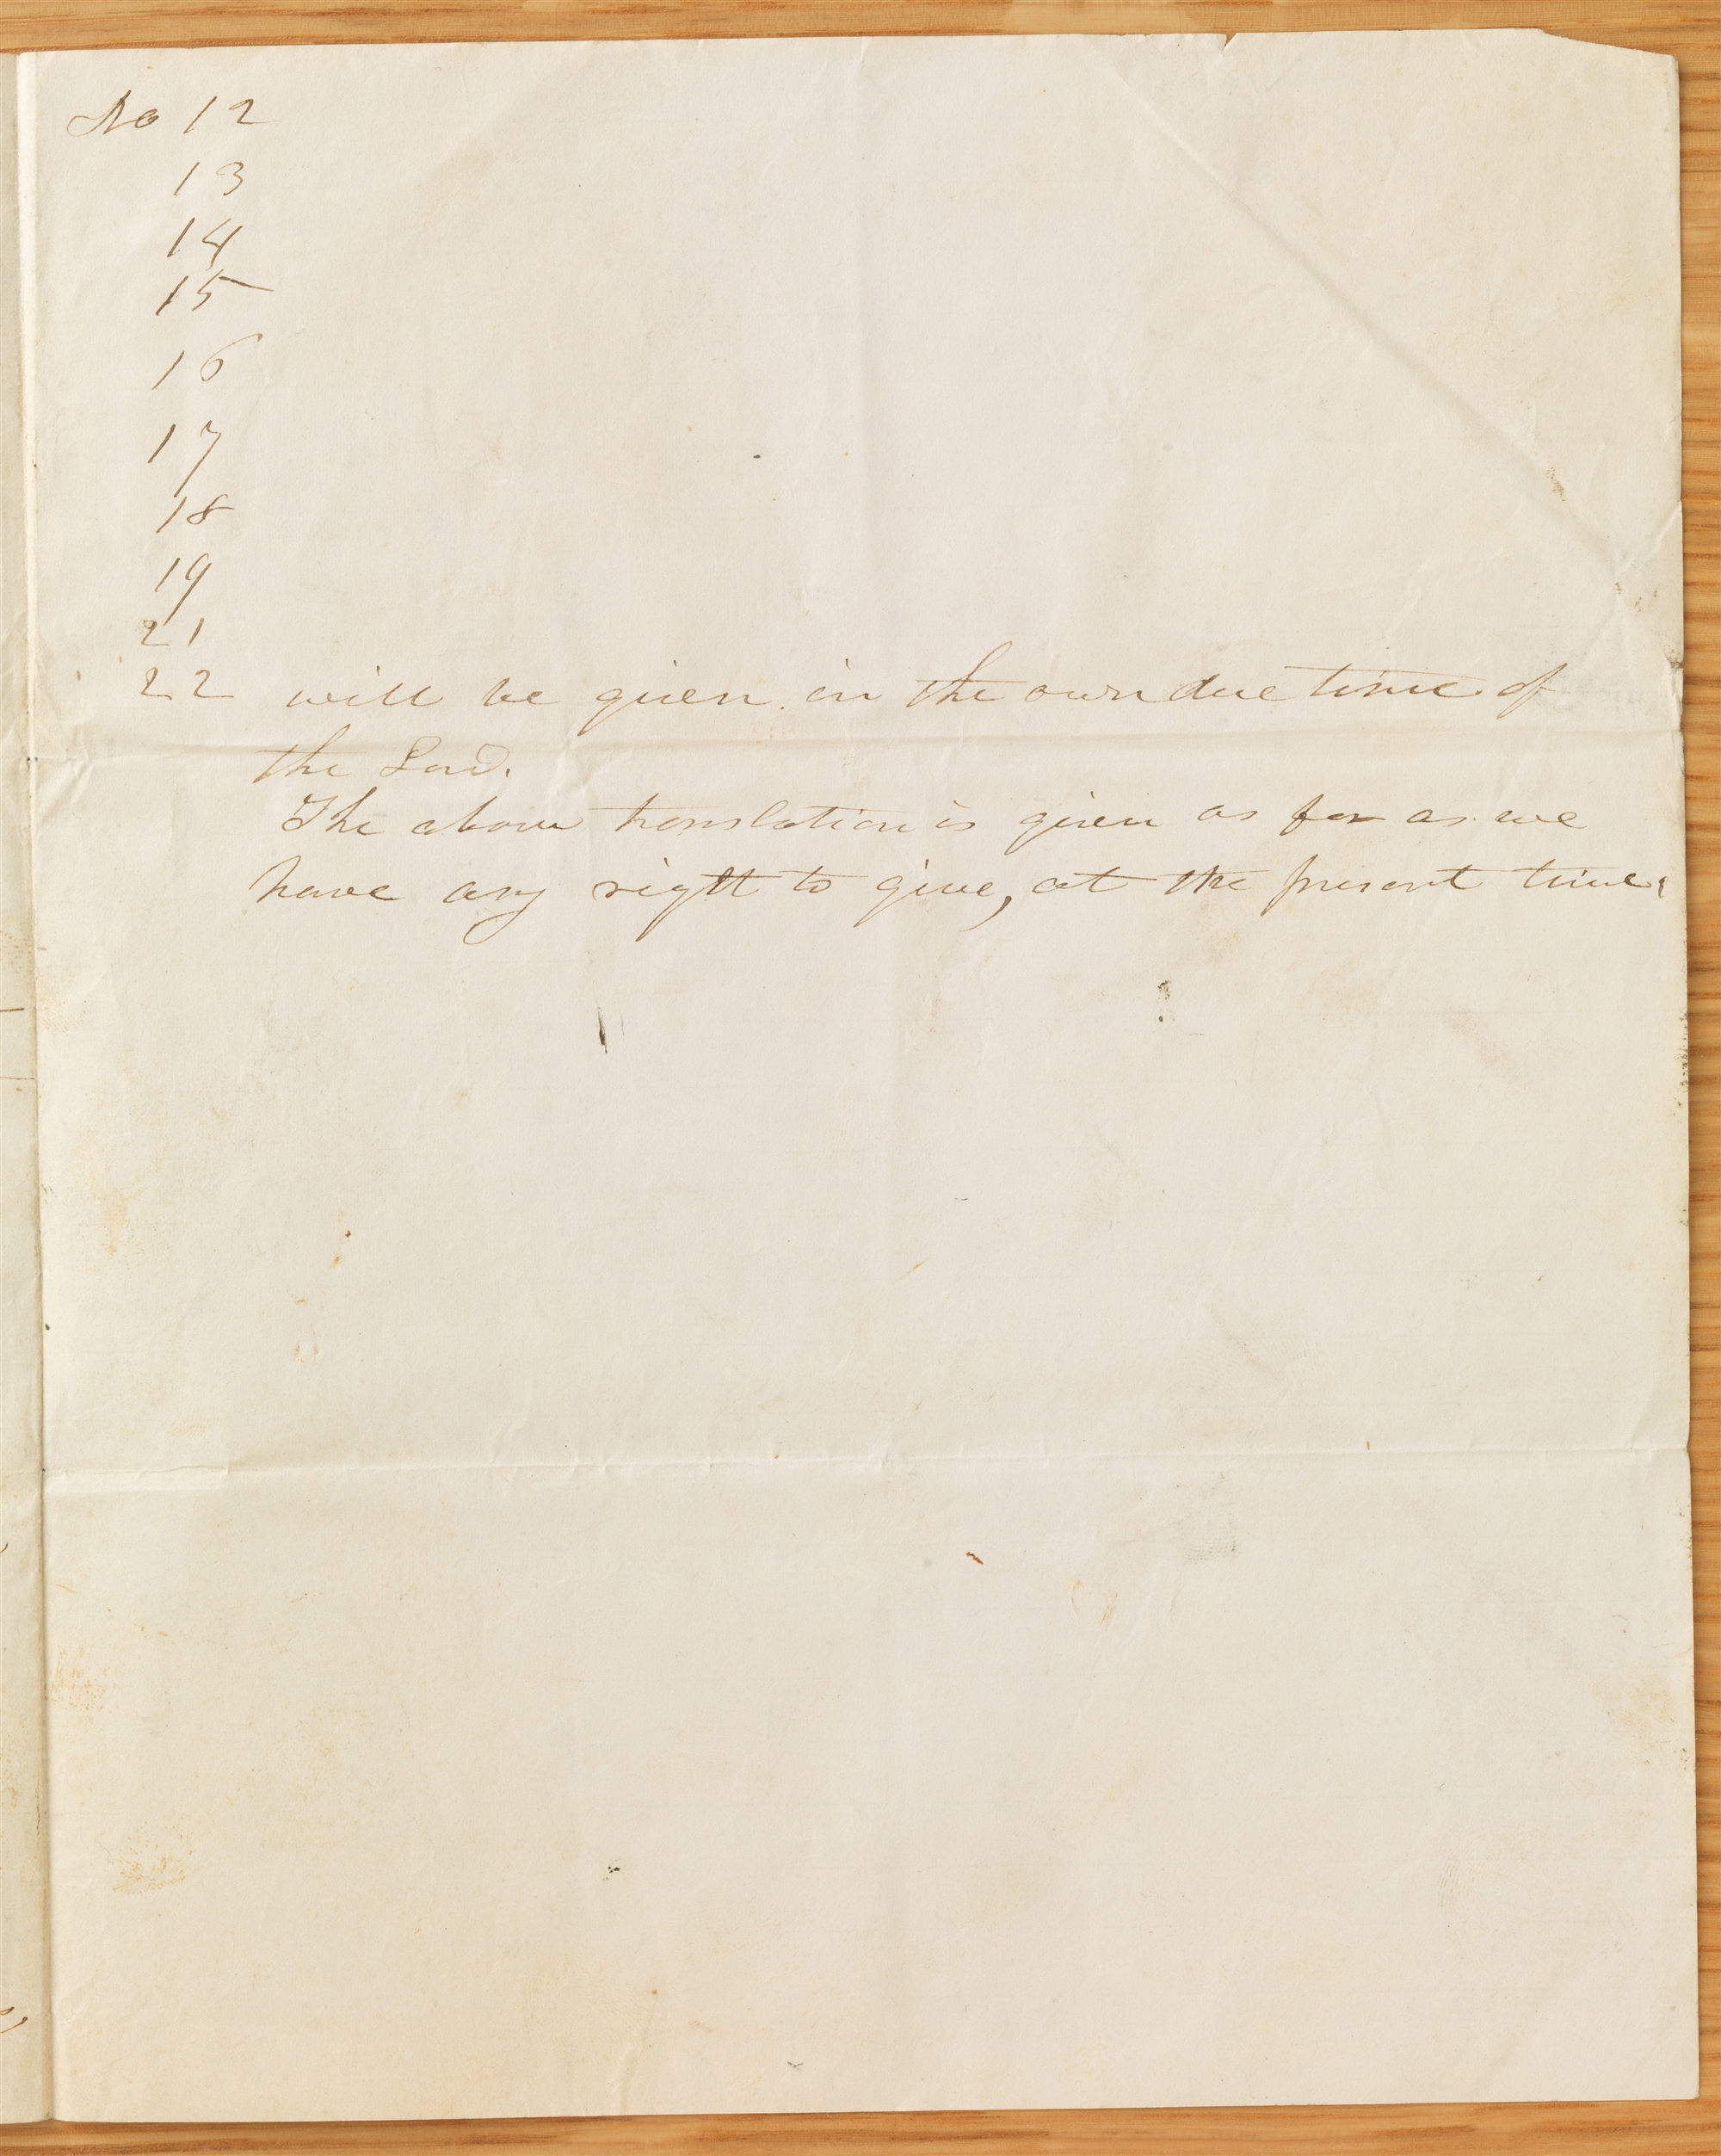 No 12
13
14
15
16
17
18
19
21
22 will be given in the own due time of
the Lord.
The above translation is given as far as we
have any right to give, at the present time.